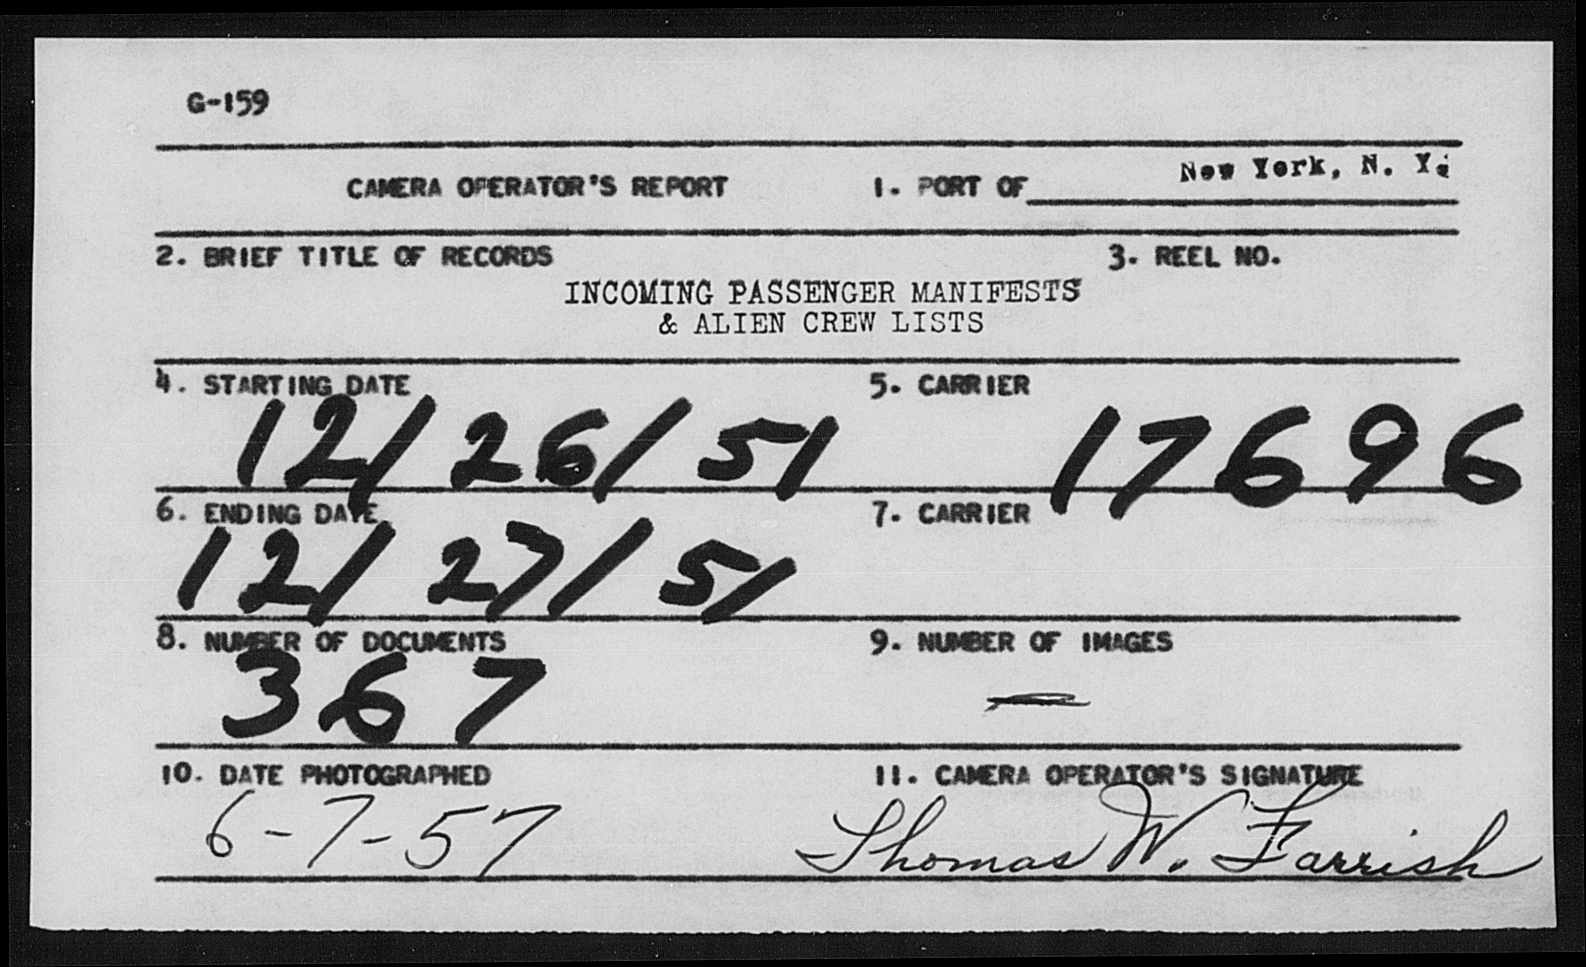 G-159
CAMERA OPERATOR'S REPORT 1. PORT OF New York, N. Y.
2. BRIEF TITLE OF RECORDS 3. REEL NO.
INCOMING PASSENGER MANIFESTS
& ALIEN CREW LISTS
4. STARTING DATE 5. CARRIER
12/26/51 17696
6. ENDING DATE 7. CARRIER
12/27/51
8. NUMBER OF DOCUMENTS 9. NUMBER OF IMAGES
367 —
10. DATE PHOTOGRAPHED 11. CAMERA OPERATOR'S SIGNATURE
6-7-57 Thomas W. Farrish